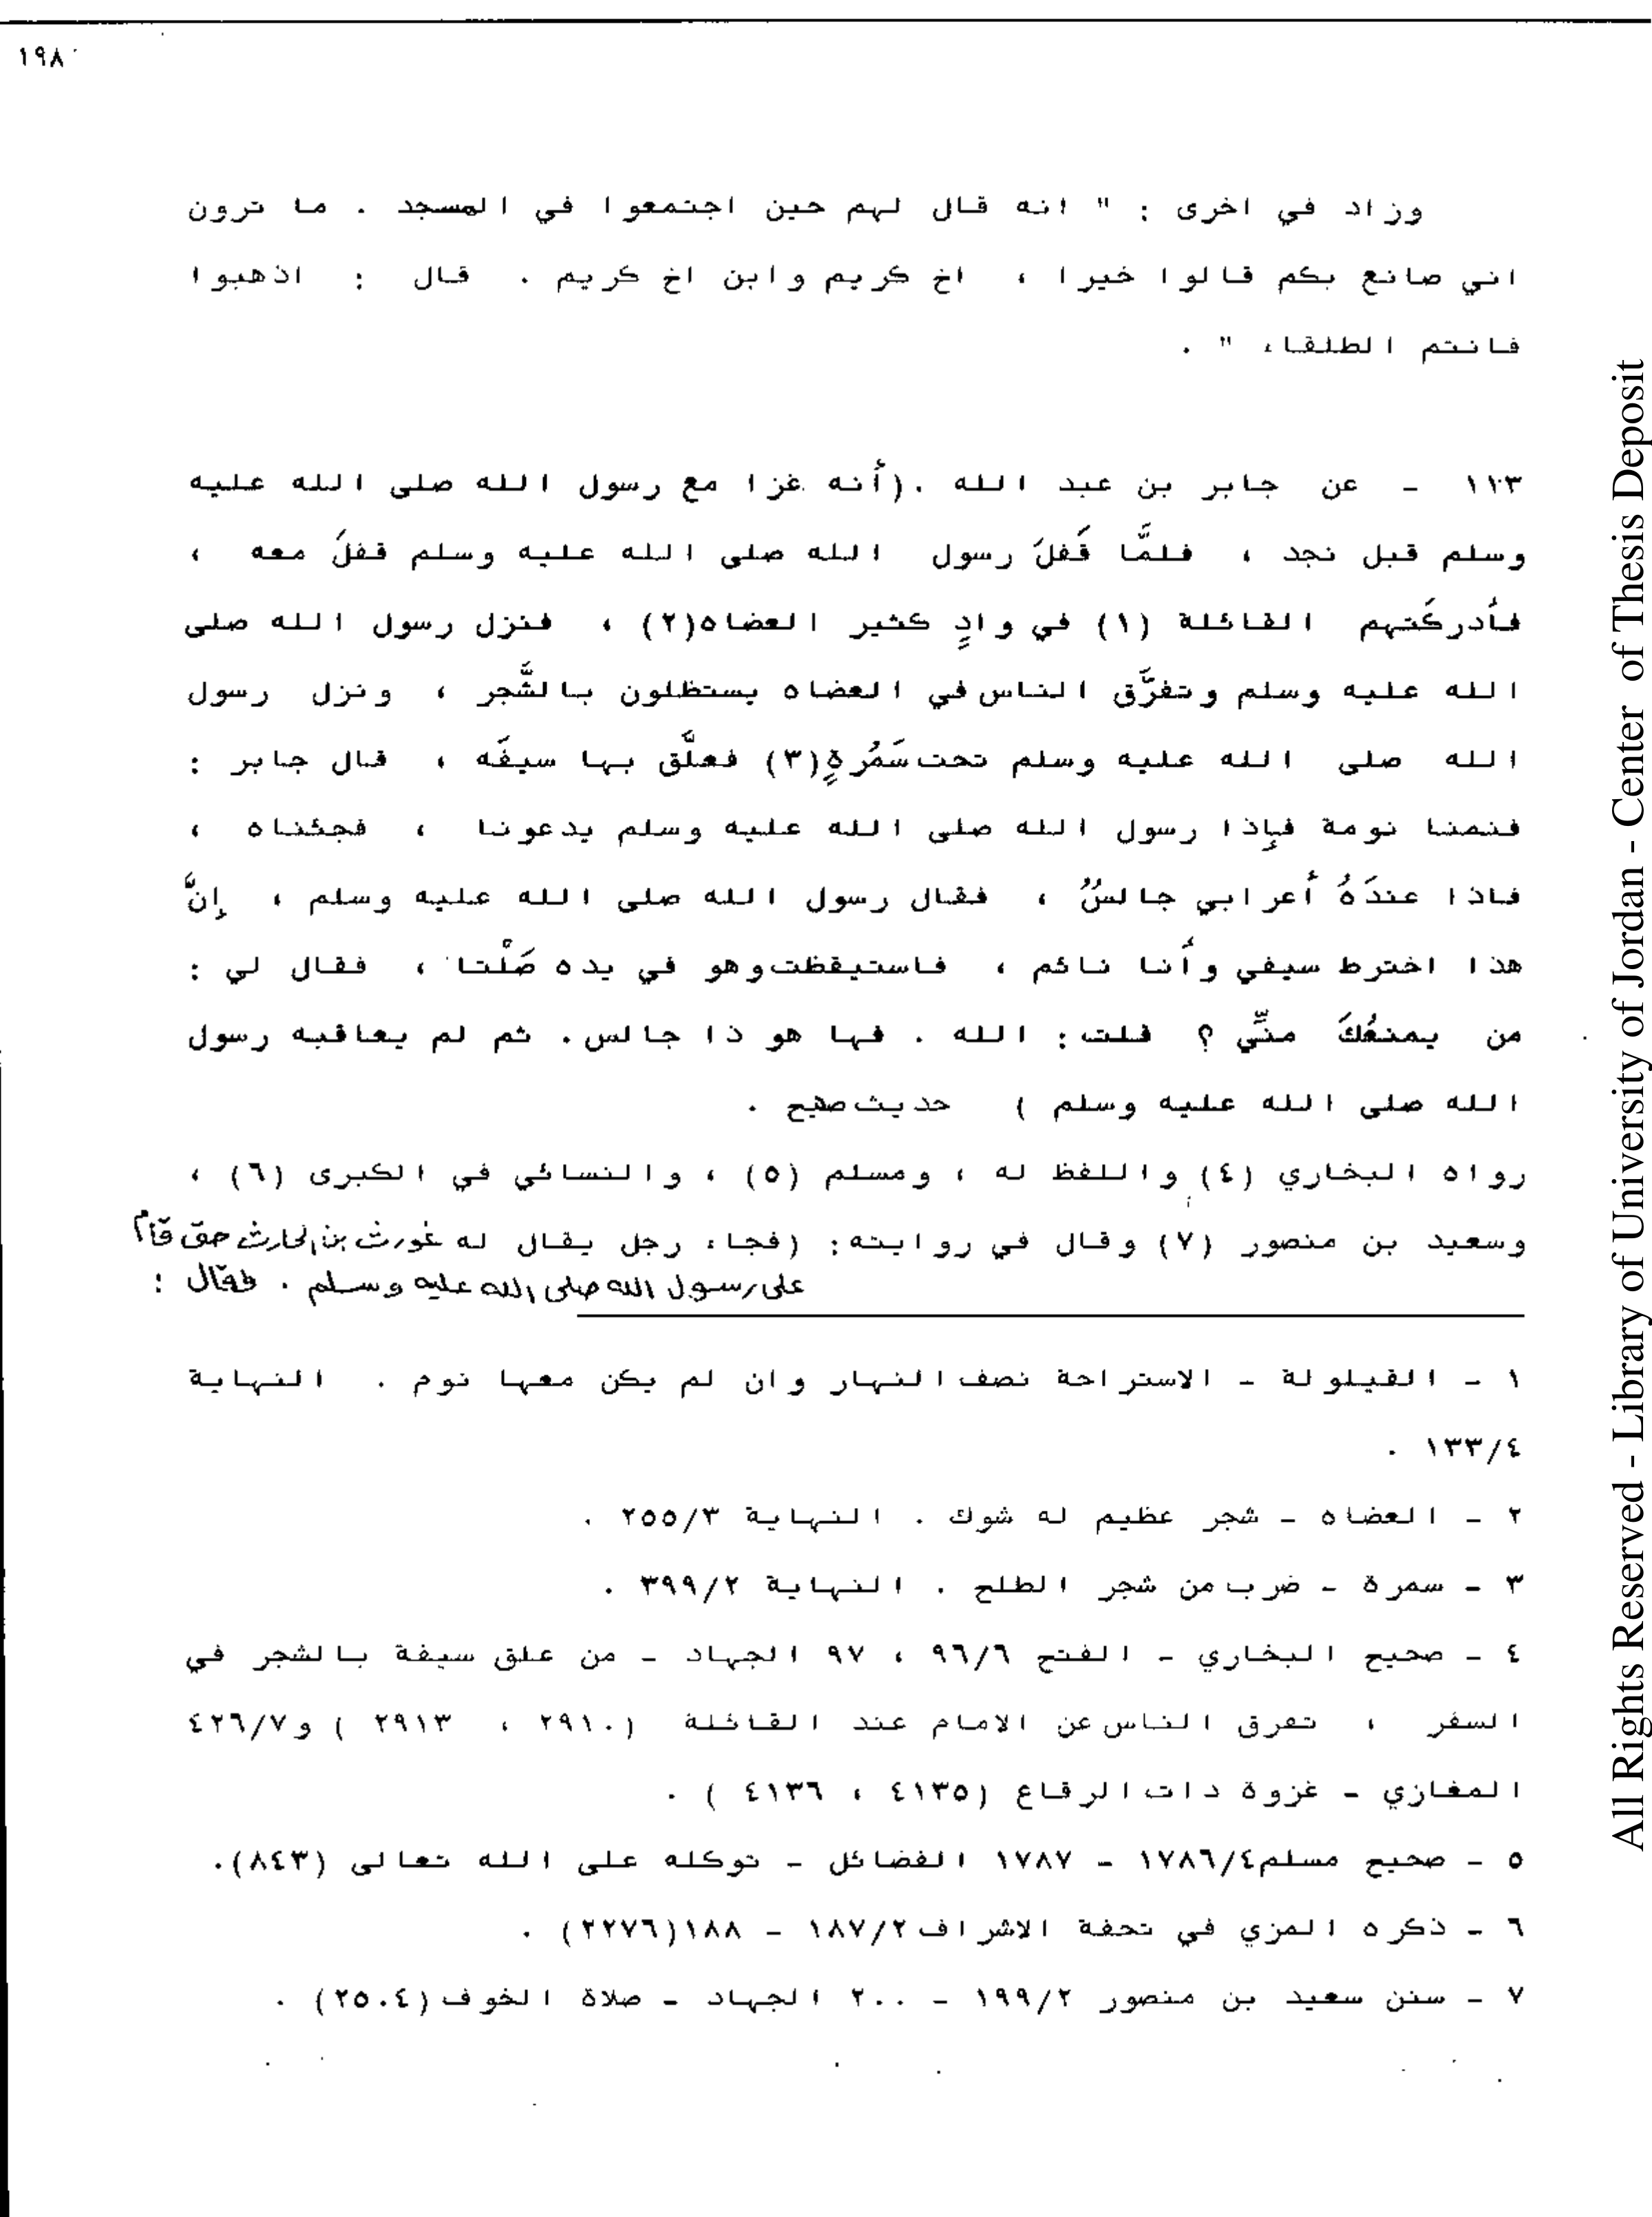 ١٩٨
وزاد في اخرى : " انه قال لهم حين اجتمعوا في المسجد . ما ترون
اني صانع بكم قالوا خيرا ، اخ كريم وابن اخ كريم . قال : اذهبوا
فانتم الطلقاء " .
١١٣ - عن جابر بن عبد الله .(أنه غزا مع رسول الله صلى الله عليه
وسلم قبل نجد ، فلمَّا قَفلَ رسول الله صلى الله عليه وسلم قفلَ معه ،
فأدركَتهم القائلة (١) في وادٍ كثير العضاه(٢) ، فنزل رسول الله صلى
الله عليه وسلم وتفرَّق الناس في العضاه يستظلون بالشَّجر ، ونزل رسول
الله صلى الله عليه وسلم تحت سَمُرةٍ(٣) فعلَّق بها سيفَه ، قال جابر :
فنمنا نومة فإذا رسول الله صلى الله عليه وسلم يدعونا ، فجئناه ،
فاذا عندَهُ أعرابي جالسٌ ، فقال رسول الله صلى الله عليه وسلم ، إنَّ
هذا اخترط سيفي وأنا نائم ، فاستيقظت وهو في يده صَلْتا ، فقال لي :
من يمنعُكَ منِّي ؟ قلت : الله . فها هو ذا جالس. ثم لم يعاقبه رسول
الله صلى الله عليه وسلم ) حديث صحيح .
رواه البخاري (٤) واللفظ له ، ومسلم (٥) ، والنسائي في الكبرى (٦) ،
وسعيد بن منصور (٧) وقال في روايته : (فجاء رجل يقال له غورث بن الحارث حتى قام
على رسول الله صلى الله عليه وسلم . فقال :
١ - القيلولة - الاستراحة نصف النهار وان لم يكن معها نوم . النهاية
١٣٣/٤ .
٢ - العضاه - شجر عظيم له شوك . النهاية ٢٥٥/٣ .
٣ - سمرة - ضرب من شجر الطلح . النهاية ٣٩٩/٢ .
٤ - صحيح البخاري - الفتح ٩٦/٦ ، ٩٧ الجهاد - من علق سيفة بالشجر في
السفر ، تفرق الناس عن الامام عند القائلة (٢٩١٠ ، ٢٩١٣ ) و٤٢٦/٧
المغازي - غزوة دات الرقاع (٤١٣٥ ، ٤١٣٦ ) .
٥ - صحيح مسلم١٧٨٦/٤ - ١٧٨٧ الفضائل - توكله على الله تعالى (٨٤٣).
٦ - ذكره المزي في تحفة الاشراف ١٨٧/٢ - ١٨٨(٢٢٧٦) .
٧ - سنن سعيد بن منصور ١٩٩/٢ - ٢٠٠ الجهاد - صلاة الخوف (٢٥٠٤) .
All Rights Reserved - Library of University of Jordan - Center of Thesis Deposit